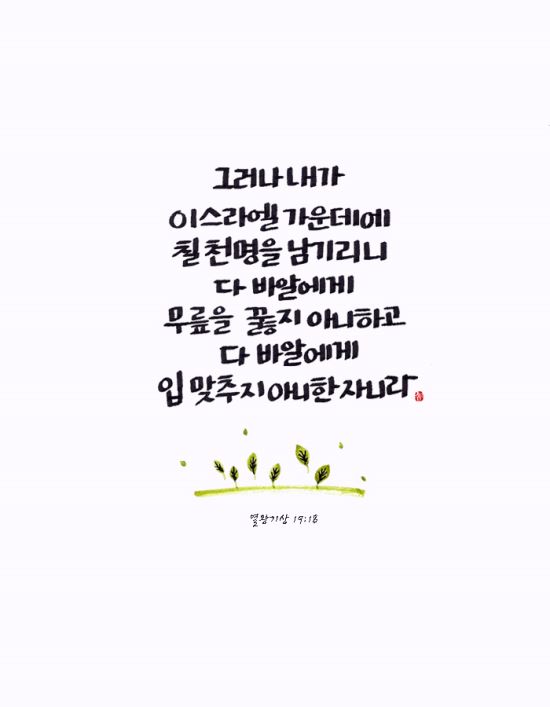 그러나 내가
이스라엘 가운데에
칠 천명을 남기리니
다 바알에게
무릎을 꿇지 아니하고
다 바알에게
입 맞추지 아니한 자니라
열왕기상 19:18